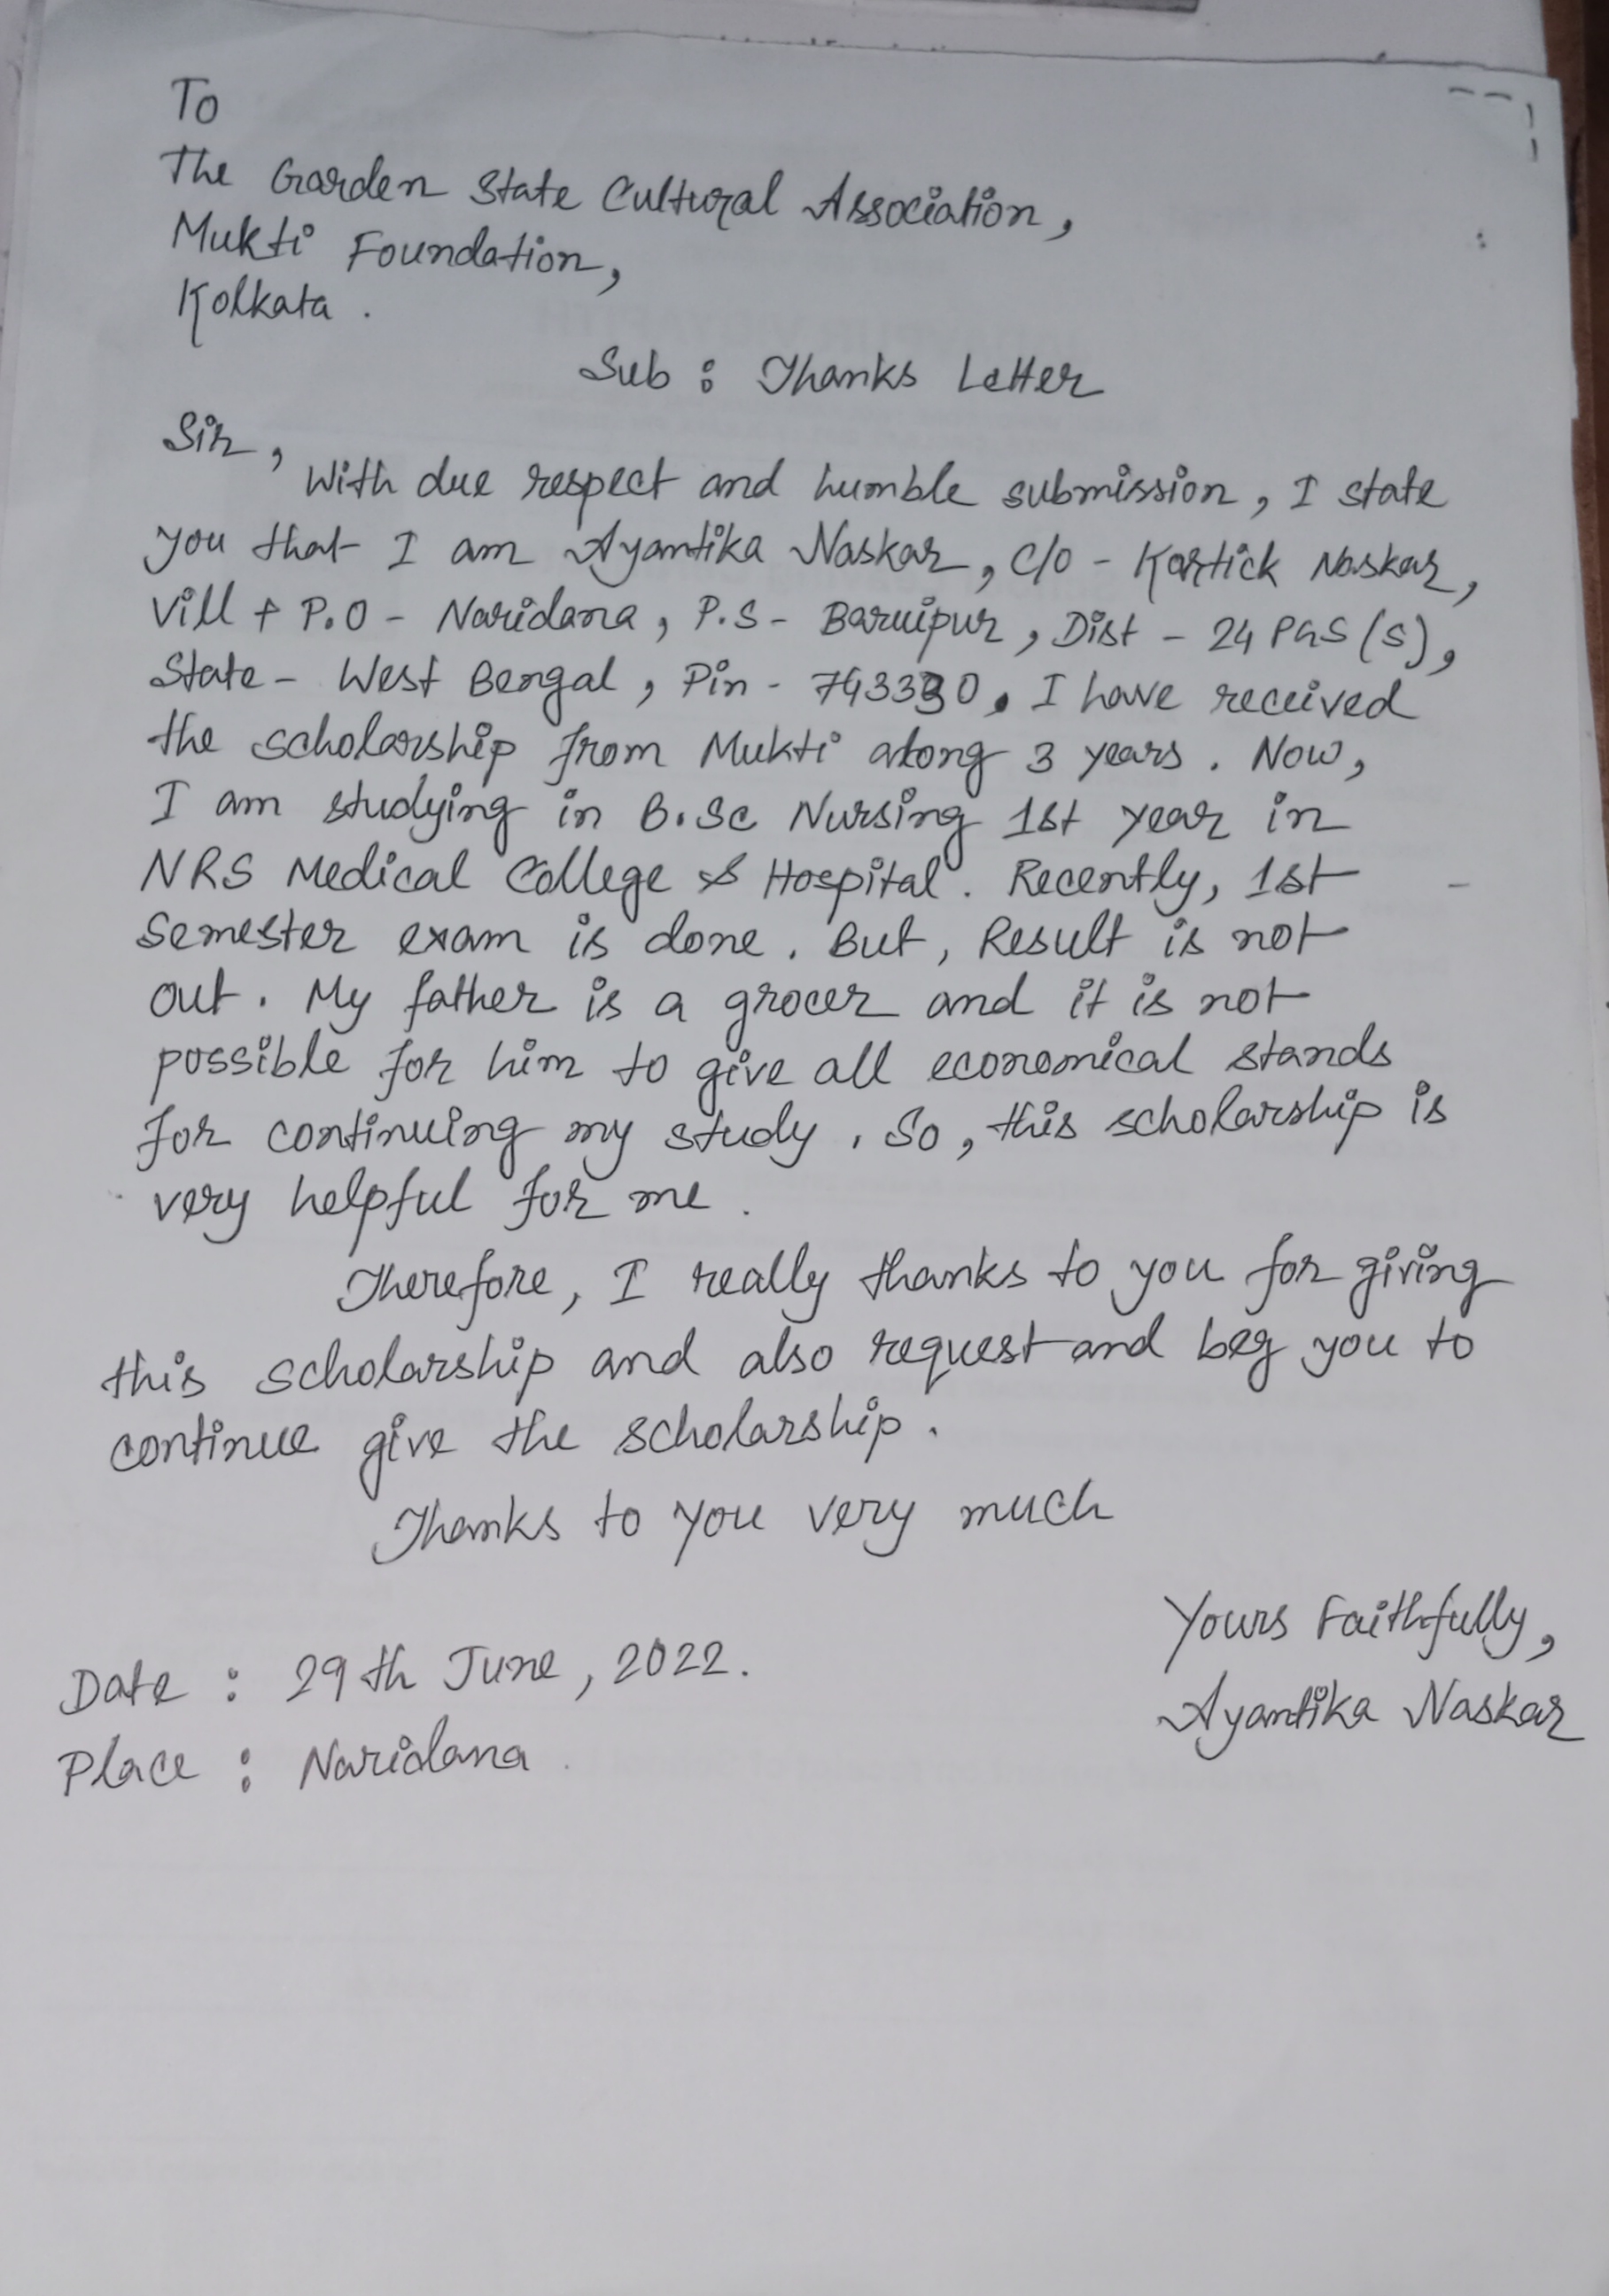 To
The Garden State Cultural Association,
Mukti Foundation,
Kolkata.
Sub : Thanks Letter
Sir,
With due respect and humble submission, I state
you that I am Ayantika Naskar, C/O - Kartick Naskar,
Vill + P.O - Naridana, P.S - Baruipur, Dist - 24 PGS (S),
State - West Bengal, Pin - 743330. I have received
the scholarship from Mukti along 3 years. Now,
I am studying in B.Sc Nursing 1st year in
NRS Medical College & Hospital. Recently, 1st
semester exam is done. But, Result is not
out. My father is a grocer and it is not
possible for him to give all economical stands
for continuing my study. So, this scholarship is
very helpful for me.
Therefore, I really thanks to you for giving
this scholarship and also request and beg you to
continue give the scholarship.
Thanks to you very much
Yours Faithfully,
Date : 29th June, 2022.
Ayantika Naskar
Place : Naridana